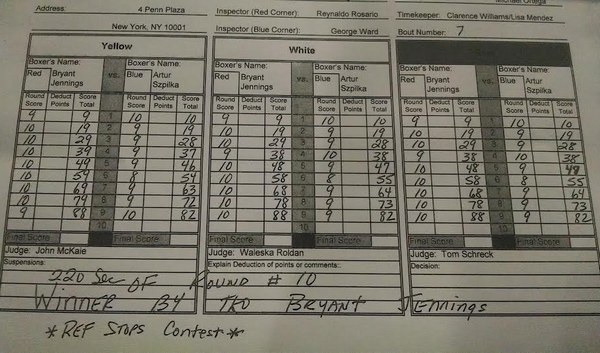 Address: 4 Penn Plaza Inspector (Red Corner): Reynaldo Rosario Timekeeper: Clarence Williams/Lisa Mendez
New York, NY 10001 Inspector (Blue Corner): George Ward Bout Number: 7
Yellow White
Boxer's Name: Boxer's Name: Boxer's Name: Boxer's Name: Boxer's Name: Boxer's Name:
Red Bryant Jennings vs. Blue Artur Szpilka Red Bryant Jennings vs. Blue Artur Szpilka Red Bryant Jennings vs. Blue Artur Szpilka
Round Score Deduct Points Score Total Round Score Deduct Points Score Total Round Score Deduct Points Score Total Round Score Deduct Points Score Total Round Score Deduct Points Score Total Round Score Deduct Points Score Total
9 9 1 10 10 9 9 1 10 10 9 9 1 10 10
10 19 2 9 19 10 19 2 9 19 10 19 2 9 19
10 29 3 9 28 10 29 3 9 28 10 29 3 9 28
10 39 4 9 37 9 38 4 10 38 9 38 4 10 38
10 49 5 9 46 10 48 5 9 47 10 48 5 9
10 59 6 8 54 10 58 6 8 55 10 58 6 8 55
10 69 7 9 63 10 68 7 9 64 10 68 7 9 64
10 79 8 9 72 10 78 8 9 73 10 78 8 9 73
9 88 9 10 82 10 88 9 9 82 10 88 9 9 82
10 10 10
Final Score Final Score Final Score Final Score Final Score Final Score
Judge: John McKaie Judge: Waleska Roldan Judge: Tom Schreck
Suspensions: Explain Deduction of points or comments: Decision:
220 Sec OF Round # 10
Winner BY TKO Bryant Jennings
*REF STOPS Contest*